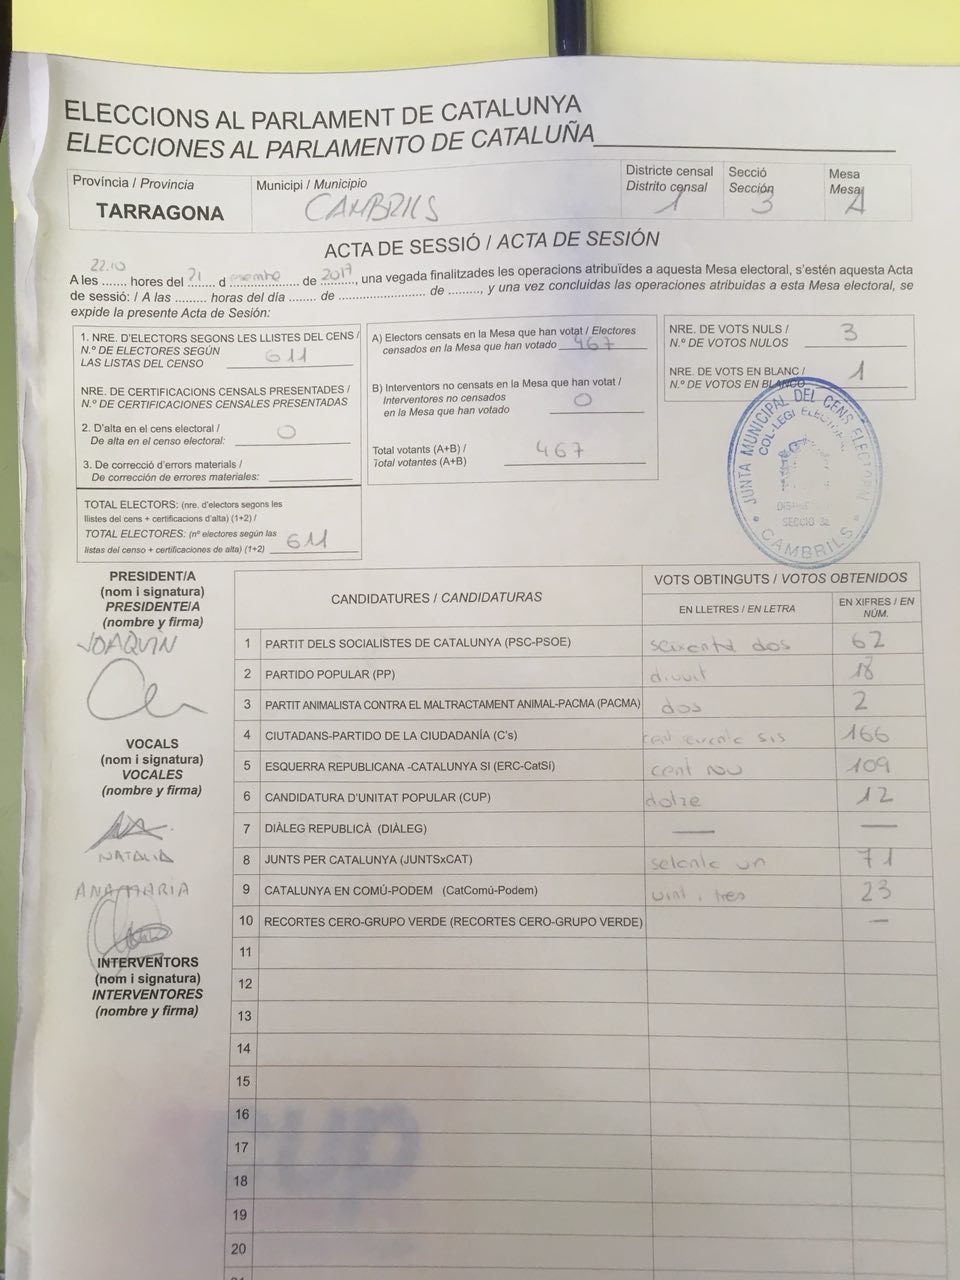 ELECCIONS AL PARLAMENT DE CATALUNYA
ELECCIONES AL PARLAMENTO DE CATALUÑA
Província / Provincia
TARRAGONA
Municipi / Municipio
CAMBRILS
Districte censal
Distrito censal
1
Secció
Sección
3
Mesa
Mesa
A
ACTA DE SESSIÓ / ACTA DE SESIÓN
22.10 21 desembre 2017
A les ....... hores del ....... d ....................... de ........., una vegada finalitzades les operacions atribuïdes a aquesta Mesa electoral, s'estén aquesta Acta
de sessió: / A las ......... horas del día ....... de ........................ de ........., y una vez concluidas las operaciones atribuidas a esta Mesa electoral, se
expide la presente Acta de Sesión:
1. NRE. D'ELECTORS SEGONS LES LLISTES DEL CENS /
N.º DE ELECTORES SEGÚN
LAS LISTAS DEL CENSO 611
NRE. DE CERTIFICACIONS CENSALS PRESENTADES /
N.º DE CERTIFICACIONES CENSALES PRESENTADAS
2. D'alta en el cens electoral /
De alta en el censo electoral: 0
3. De correcció d'errors materials /
De corrección de errores materiales:
TOTAL ELECTORS: (nre. d'electors segons les
llistes del cens + certificacions d'alta) (1+2) /
TOTAL ELECTORES: (nº electores según las
listas del censo + certificaciones de alta) (1+2) 611
A) Electors censats en la Mesa que han votat / Electores
censados en la Mesa que han votado 467
B) Interventors no censats en la Mesa que han votat /
Interventores no censados
en la Mesa que han votado 0
Total votants (A+B) /
Total votantes (A+B) 467
NRE. DE VOTS NULS /
N.º DE VOTOS NULOS 3
NRE. DE VOTS EN BLANC /
N.º DE VOTOS EN BLANCO 1
JUNTA MUNICIPAL DEL CENS ELECTORAL
COL·LEGI ELECTORAL
SECCIO 3a
CAMBRILS
PRESIDENT/A
(nom i signatura)
PRESIDENTE/A
(nombre y firma)
JOAQUIN
VOCALS
(nom i signatura)
VOCALES
(nombre y firma)
NATALIA
ANA MARIA
INTERVENTORS
(nom i signatura)
INTERVENTORES
(nombre y firma)
CANDIDATURES / CANDIDATURAS
VOTS OBTINGUTS / VOTOS OBTENIDOS
EN LLETRES / EN LETRA
EN XIFRES / EN
NÚM.
1 PARTIT DELS SOCIALISTES DE CATALUNYA (PSC-PSOE) seixanta dos 62
2 PARTIDO POPULAR (PP) divuit 18
3 PARTIT ANIMALISTA CONTRA EL MALTRACTAMENT ANIMAL-PACMA (PACMA) dos 2
4 CIUTADANS-PARTIDO DE LA CIUDADANÍA (C's) cent sis 166
5 ESQUERRA REPUBLICANA -CATALUNYA SI (ERC-CatSí) cent nou 109
6 CANDIDATURA D'UNITAT POPULAR (CUP) dotze 12
7 DIÀLEG REPUBLICÀ (DIÀLEG) — —
8 JUNTS PER CATALUNYA (JUNTSxCAT) setante un 71
9 CATALUNYA EN COMÚ-PODEM (CatComú-Podem) vint i tres 23
10 RECORTES CERO-GRUPO VERDE (RECORTES CERO-GRUPO VERDE) —
11
12
13
14
15
16
17
18
19
20